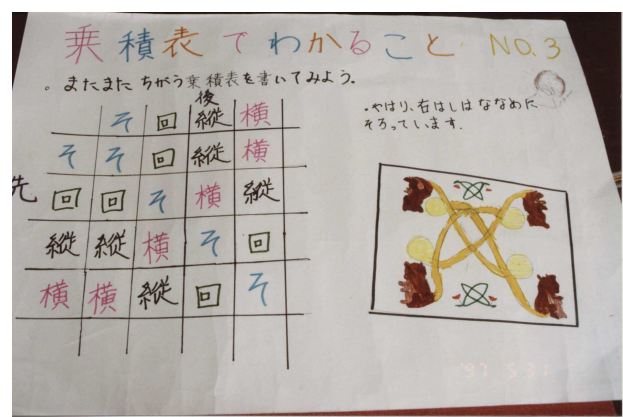 乗積表でわかること. NO.3
。またまた ちがう乗積表を書いてみよう。
後
そ 回 縦 横
そ そ 回 縦 横
先 回 回 そ 横 縦
縦 縦 横 そ 回
横 横 縦 回 そ
・やはり、右はしはななめに
そろっています.